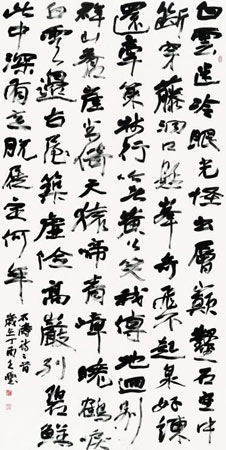 白雲迷冷眼光怪出層巔鑿石空中
斷穿藤洞口懸峯奇飛不起泉好練
還牽策杖行吟去黃公笑我傳地迴別
群山蒼崖當倚天猿啼青嶂曉鶴唳
白雲邊古屋築虛險高巖列碧鮮
此中深有意脫屣定何年
石濤詩二首
歲在丁酉之